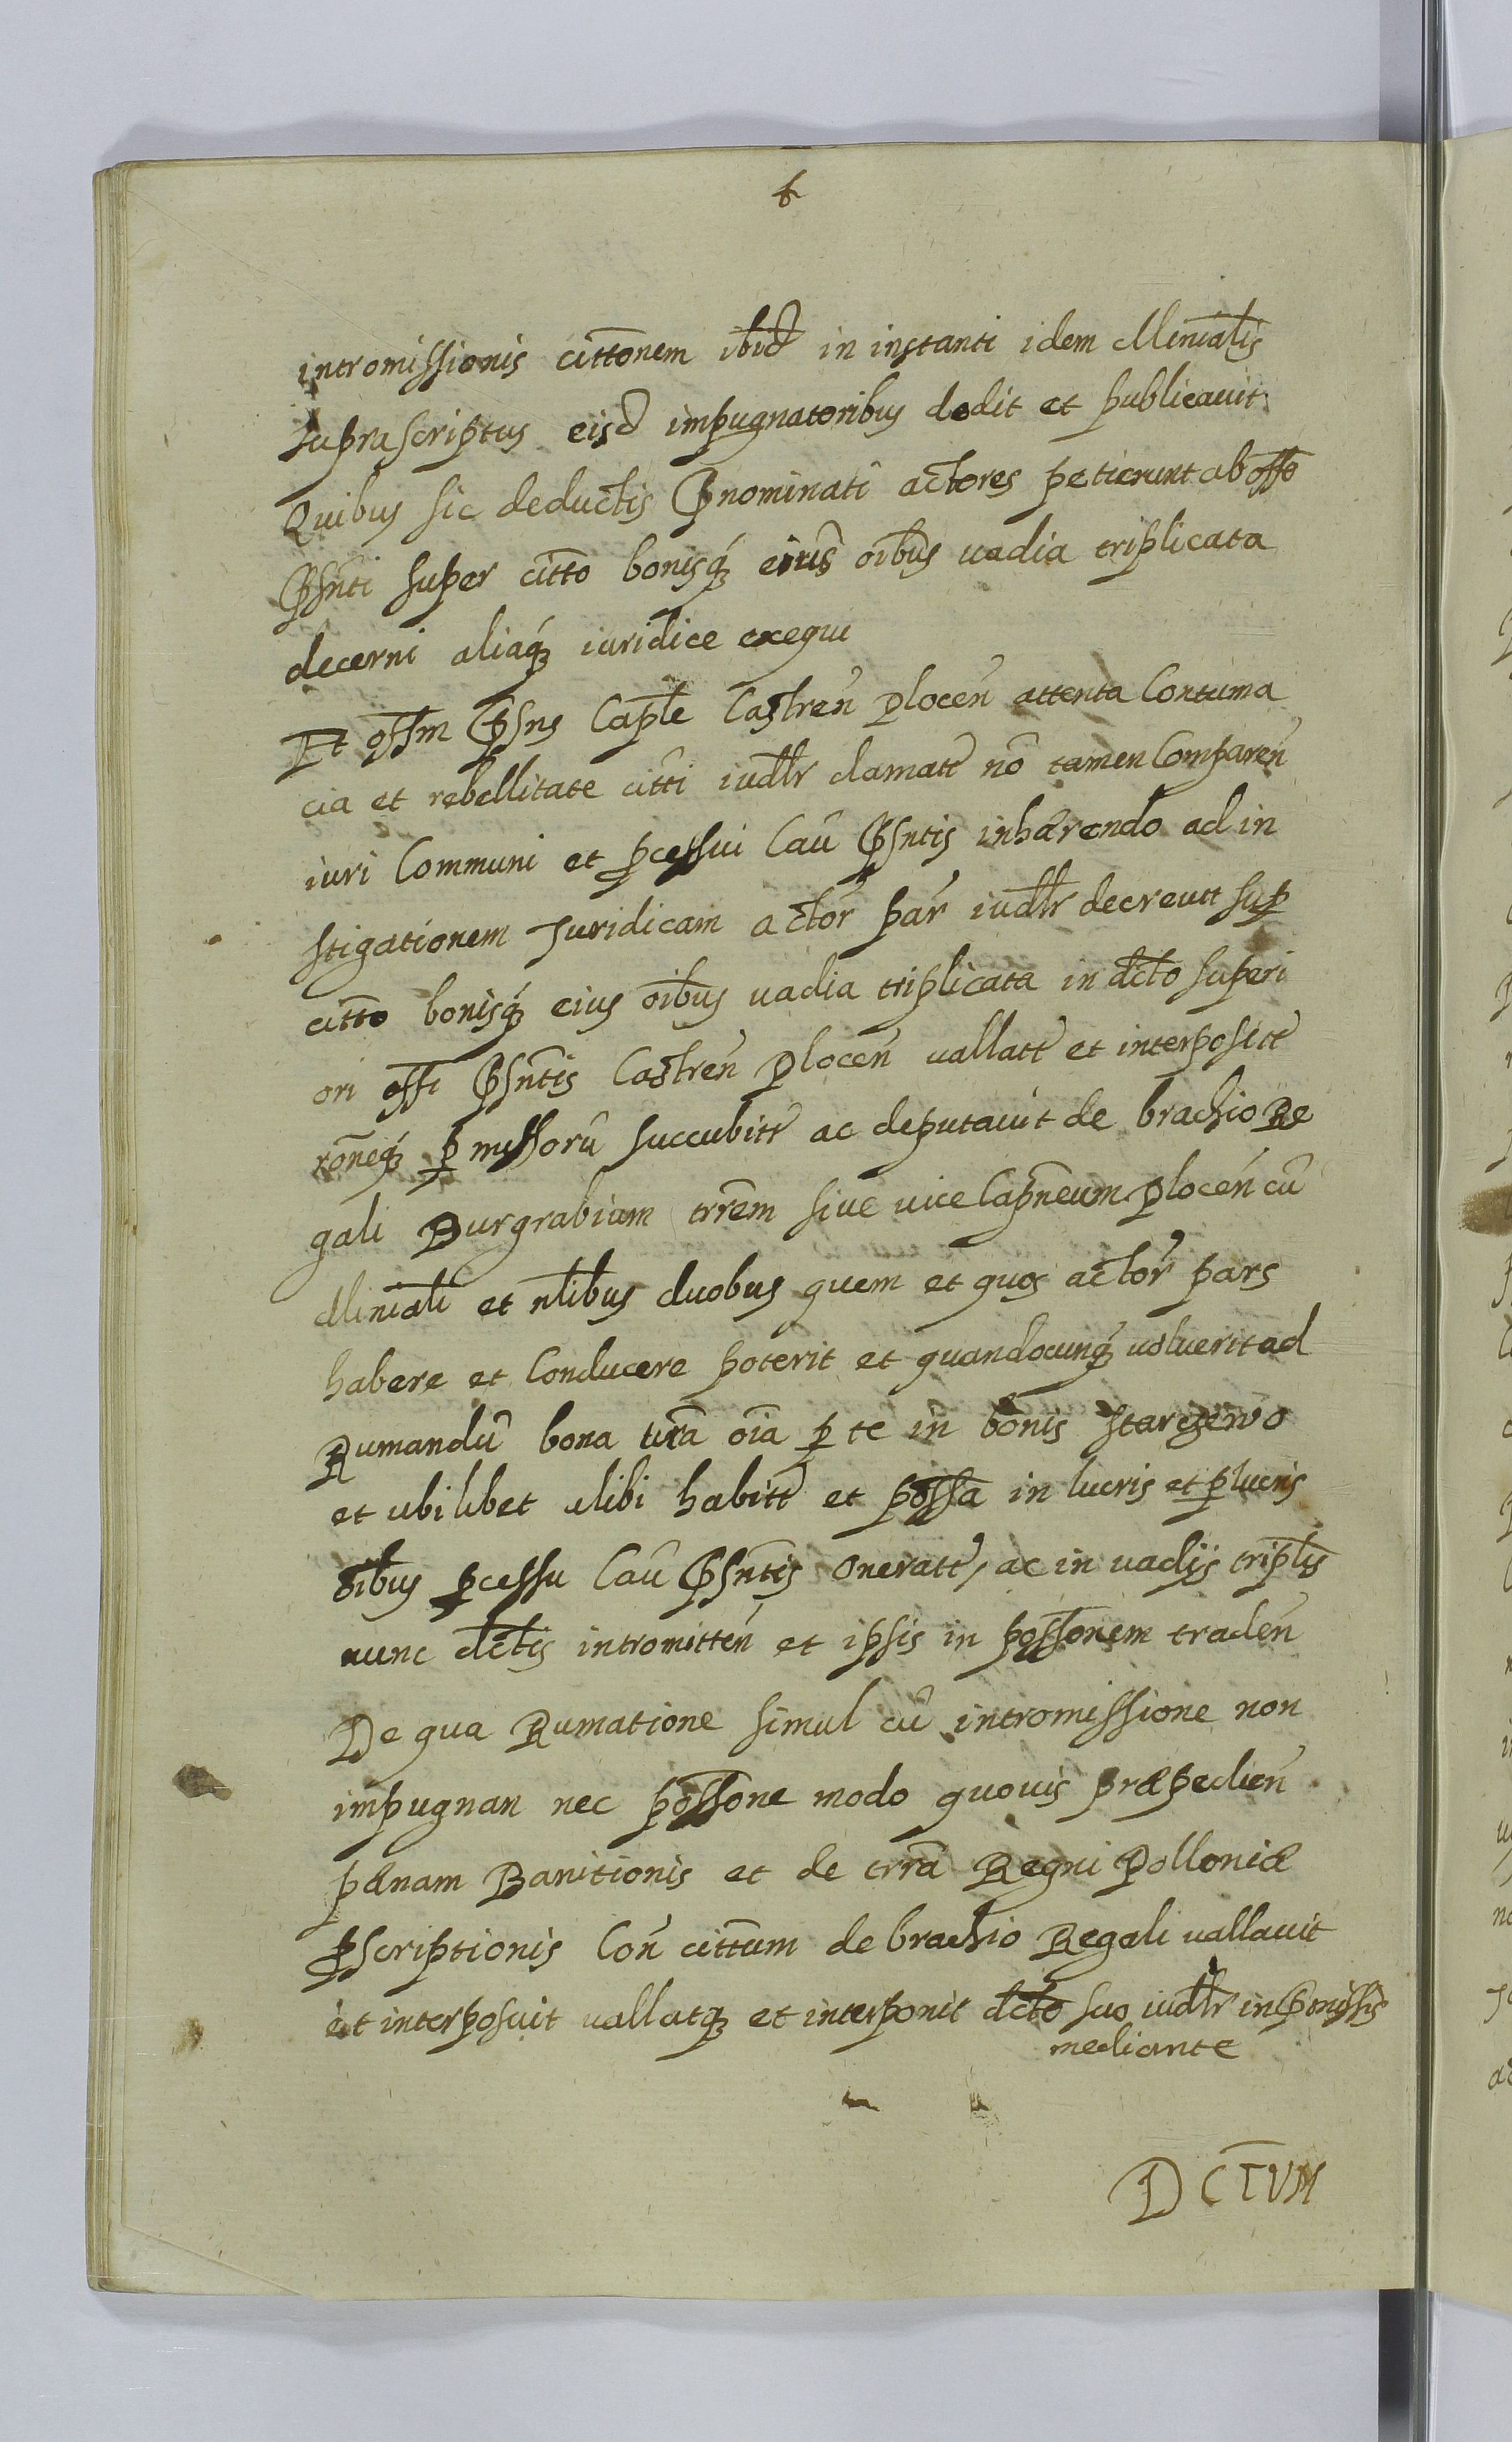 intromissionis cittōnem ibid in instanti idem Miniālis
suprascriptus eisd impugnatoribus dedit et publicavit
Quibus sic deductis Pnominati actores petierunt ab offo
Psñti super citto bonisq eius oībus vadia triplicata
decerni aliaq iuridice exequi
Et offm Psns Caplē Castren Plocen attenta Contuma
cia et rebellitate citti iudlr clamatt nō tamen Comparen
iuri Communi et pcessui Cau Psntis inhærendo ad in
stigationem Juridicam actor par iudlr decrevit sup
citto bonisq eius oībus vadia triplicata in dcto superi
ori offi Psñtis Castren Plocen vallatt et interpositt
rōneq p missorū succubitt ac deputavit de brachio Re
gali Burgrabium trrēm sive vice Capneum Plocen cū
Miniāli et nlibus duobus quem et quos actor pars
habere et Conducere poterit et quandocunq voluerit ad
Rumandū bona ura oīa p te in bonis Starozewo
et ubilibet alibi habitt et possa in lucris et plucris
oībus pcessu Cau Psñtis oneratt, ac in vadijs triplis
nunc dctis intromitten et ipsis in possōnem traden
De qua Rumatione simul cū intromissione non
impugnan nec possōne modo quovis præpedien
pænam Banitionis et de trrā Regni Polloniæ
pscriptionis Con cittum de brachio Regali vallavit
et interposuit vallatq et interponit dcto suo iudlr in Pmissis
mediante
DCTUM